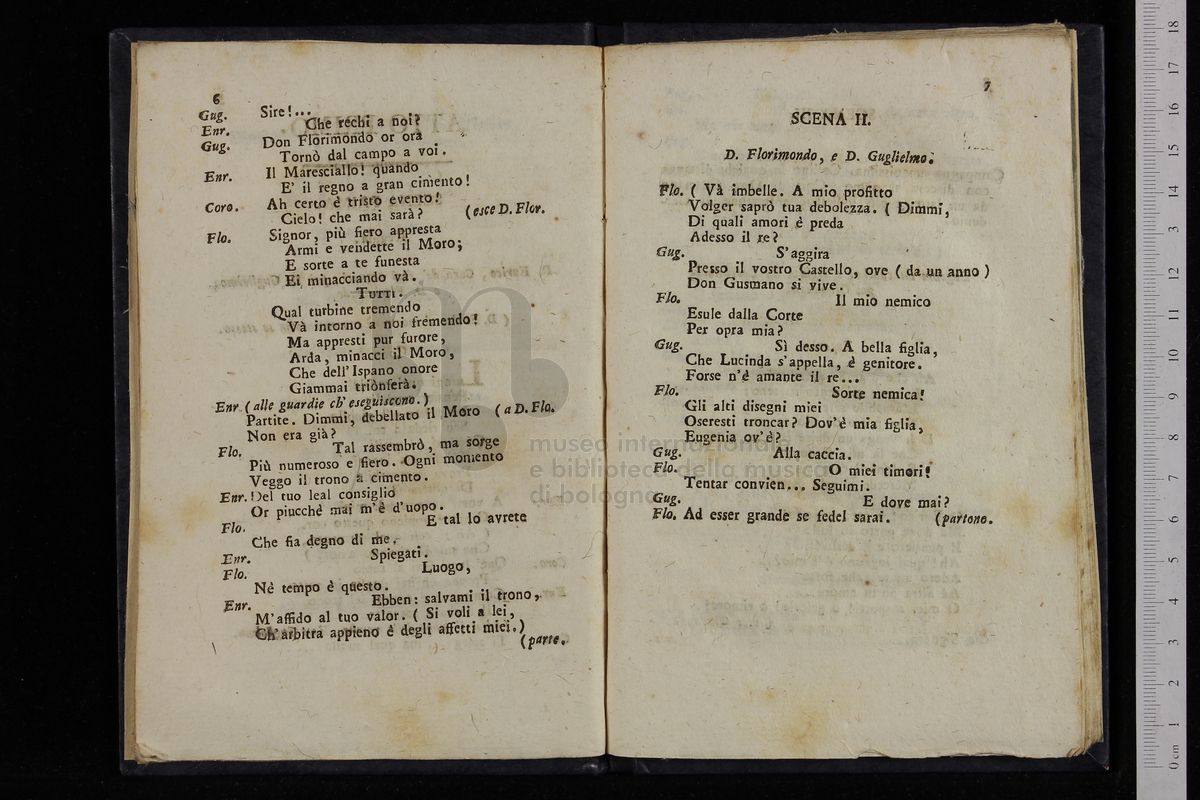 6
Gug. Sire!...
Enr. Che rechi a noi?
Gug. Don Florimondo or ora
Tornò dal campo a voi.
Enr. Il Maresciallo! quando
E' il regno a gran cimento!
Coro. Ah certo è tristo evento!
Cielo! che mai sarà? (esce D. Flor.
Flo. Signor, più fiero appresta
Armi e vendette il Moro;
E sorte a te funesta
Ei minacciando và.
TUTTI.
Qual turbine tremendo
Và intorno a noi fremendo!
Ma appresti pur furore,
Arda, minacci il Moro,
Che dell'Ispano onore
Giammai triònferà.
Enr. (alle guardie ch' eseguiscono.)
Partite. Dimmi, debellato il Moro (a D. Flo.
Non era già?
Flo. Tal rassembrò, ma sorge
Più numeroso e fiero. Ogni momento
Veggo il trono a cimento.
Enr. Del tuo leal consiglio
Or piucchè mai m'è d'uopo.
Flo. E tal lo avrete
Che fia degno di me.
Enr. Spiegati.
Flo. Luogo,
Nè tempo è questo.
Enr. Ebben: salvami il trono,
M'affido al tuo valor. ( Si voli a lei,
Ch'arbitra appieno è degli affetti miei.)
(parte.
7
SCENA II.
D. Florimondo, e D. Guglielmo.
Flo. ( Và imbelle. A mio profitto
Volger saprò tua debolezza. ( Dimmi,
Di quali amori è preda
Adesso il re?
Gug. S'aggira
Presso il vostro Castello, ove ( da un anno )
Don Gusmano si vive.
Flo. Il mio nemico
Esule dalla Corte
Per opra mia?
Gug. Sì desso. A bella figlia,
Che Lucinda s'appella, è genitore.
Forse n'è amante il re...
Flo. Sorte nemica!
Gli alti disegni miei
Oseresti troncar? Dov'è mia figlia,
Eugenia ov'è?
Gug. Alla caccia.
Flo. O miei timori!
Tentar convien... Seguimi.
Gug. E dove mai?
Flo. Ad esser grande se fedel sarai. (partono.
museo internazionale
e biblioteca della musica
di bologna
0 cm 1 2 3 4 5 6 7 8 9 10 11 12 13 14 15 16 17 18